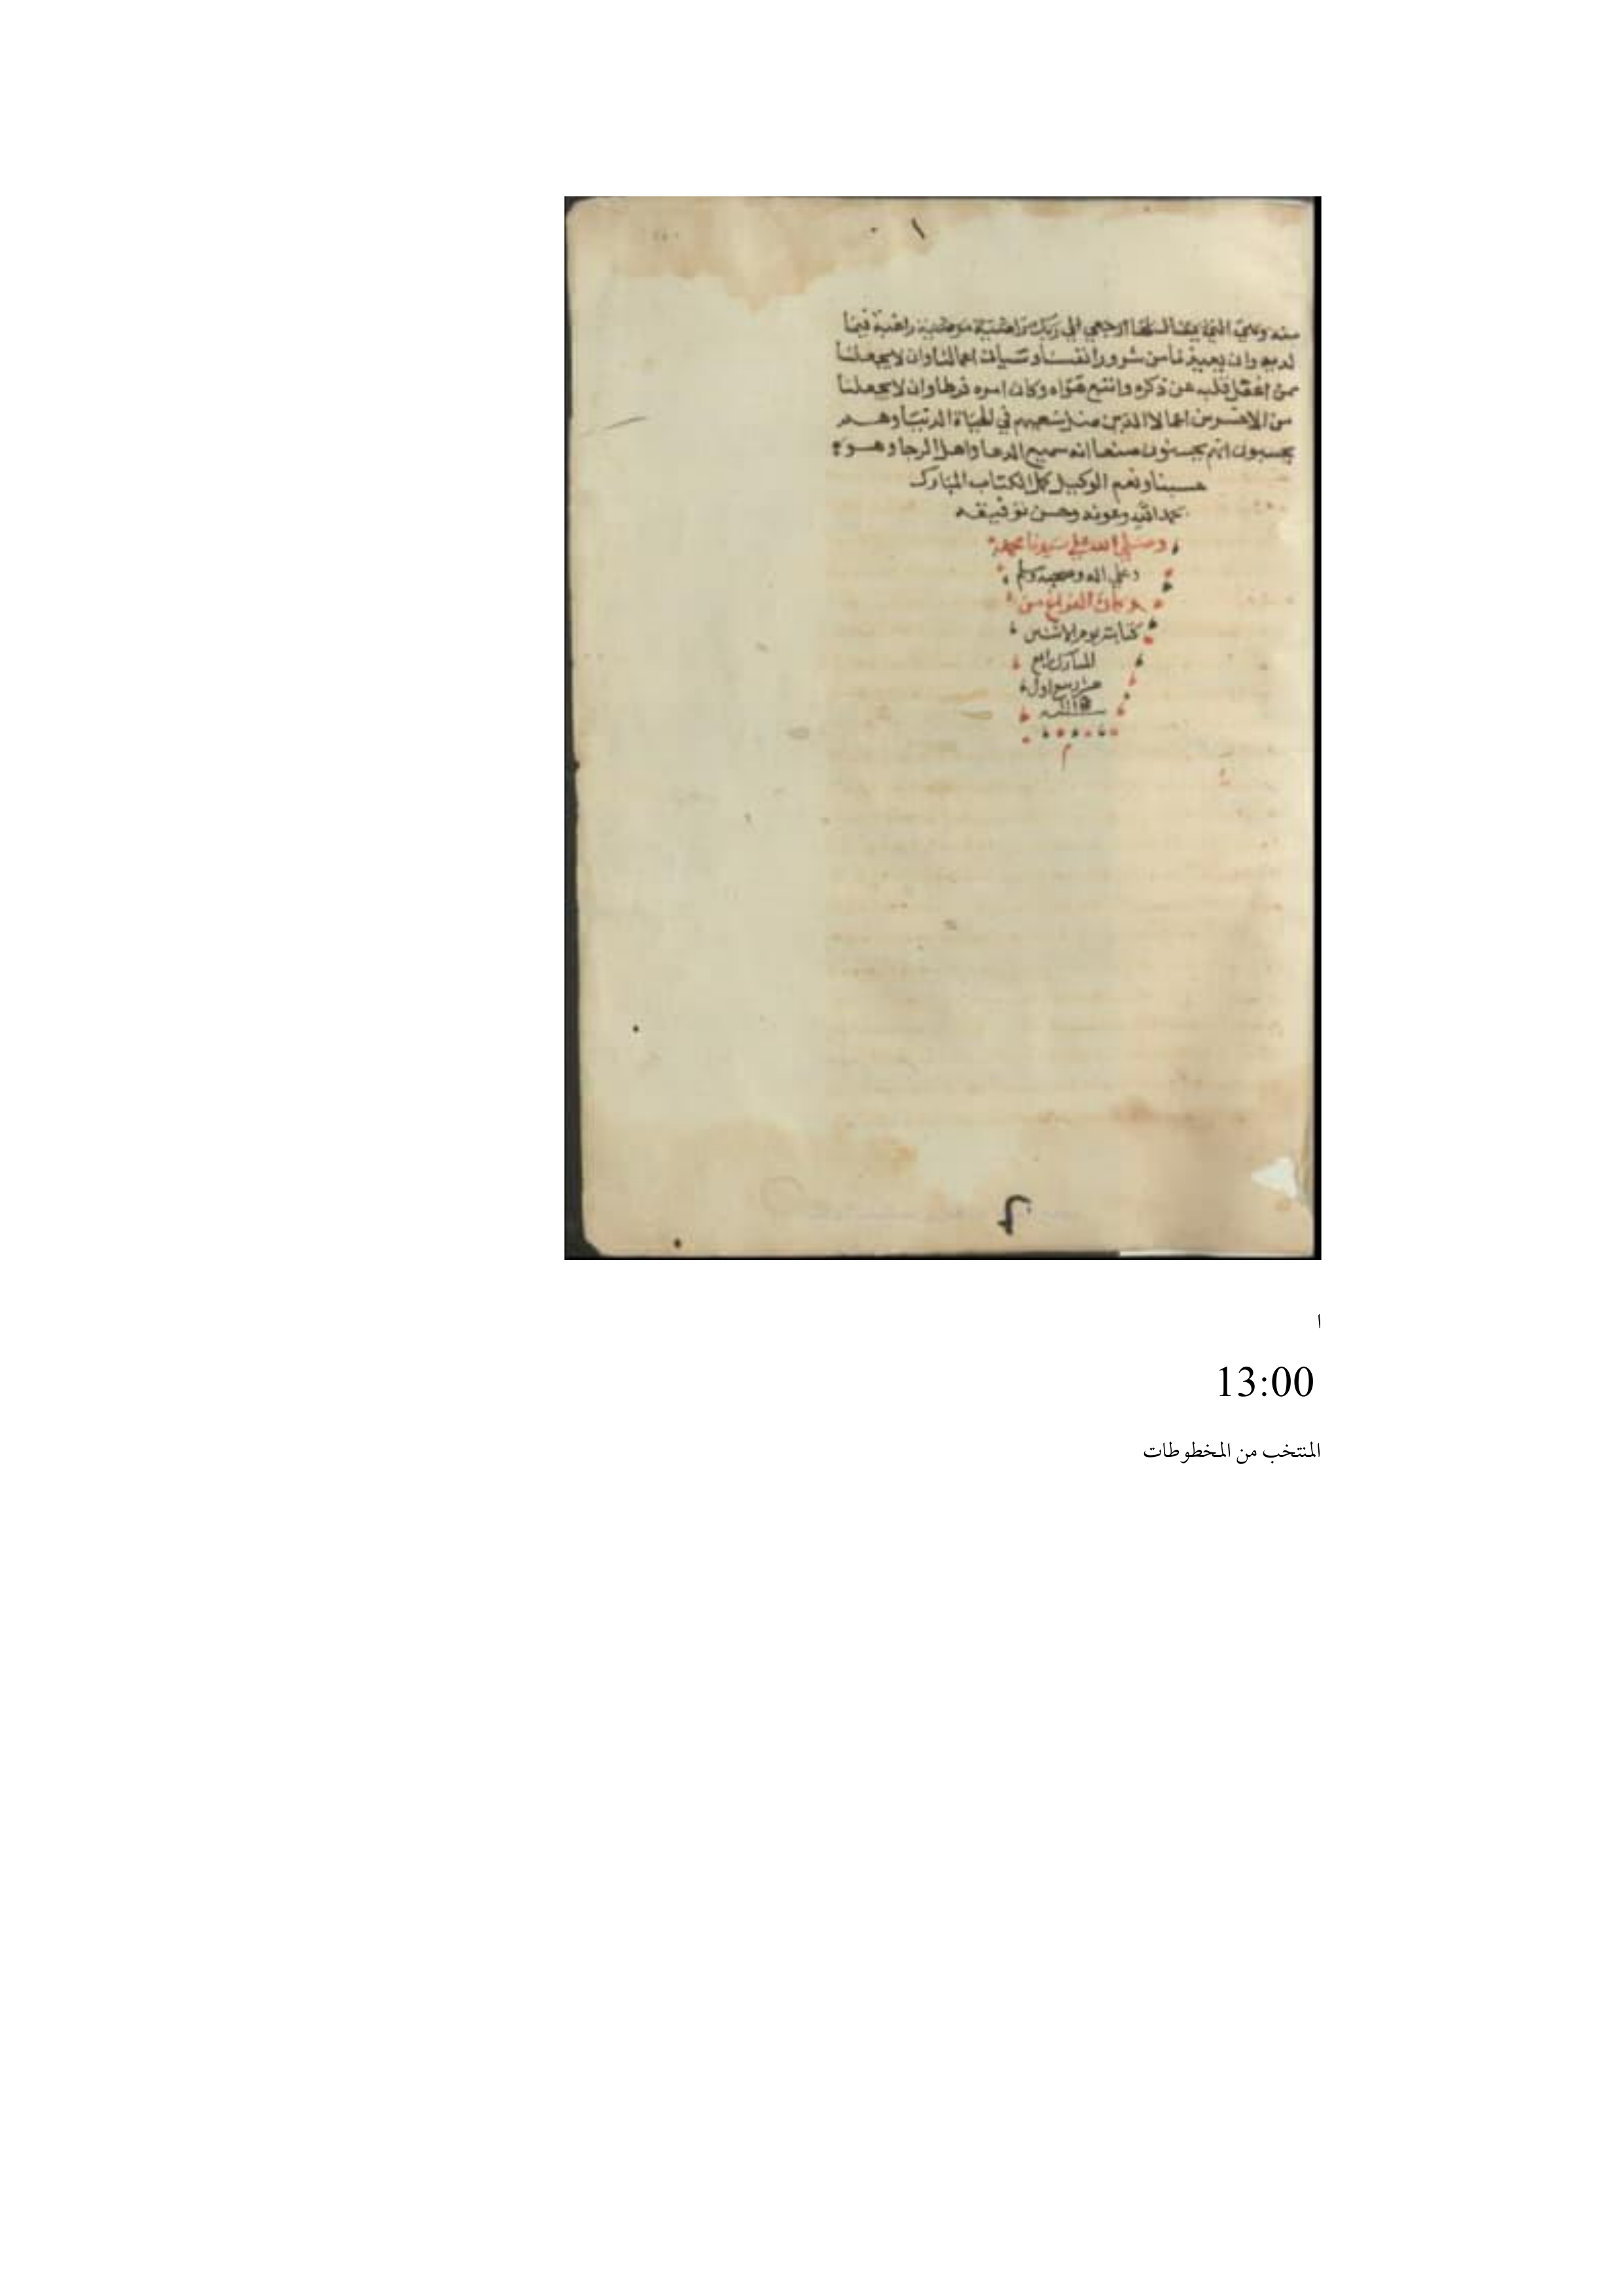 منه وهي التي يقال لها ارجعي الي ربك راضية مرضية راغبة فيما
لديه وان يعيذنا من شرور انفسنا وسيات اعمالنا وان لا يجعلنا
ممن اغفل قلبه عن ذكره واتبع هواه وكان امره فرطا وان لا يجعلنا
من الاخسرين اعمالا الذين ضل سعيهم في الحياة الدنيا وهم
يحسبون انهم يحسنون صنعا انه سميع الدعا واهل الرجا وهو
حسبنا ونعم الوكيل كمل الكتاب المبارك
بحمد الله وعونه وحسن توفيقه
وصلي الله علي سيدنا محمد
وعلي اله وصحبه وسلم
وكان الفراغ من
كتابته يوم الاثنين
المبارك رابع
ربيع اول
سنة
م
ا
13:00
المنتخب من المخطوطات